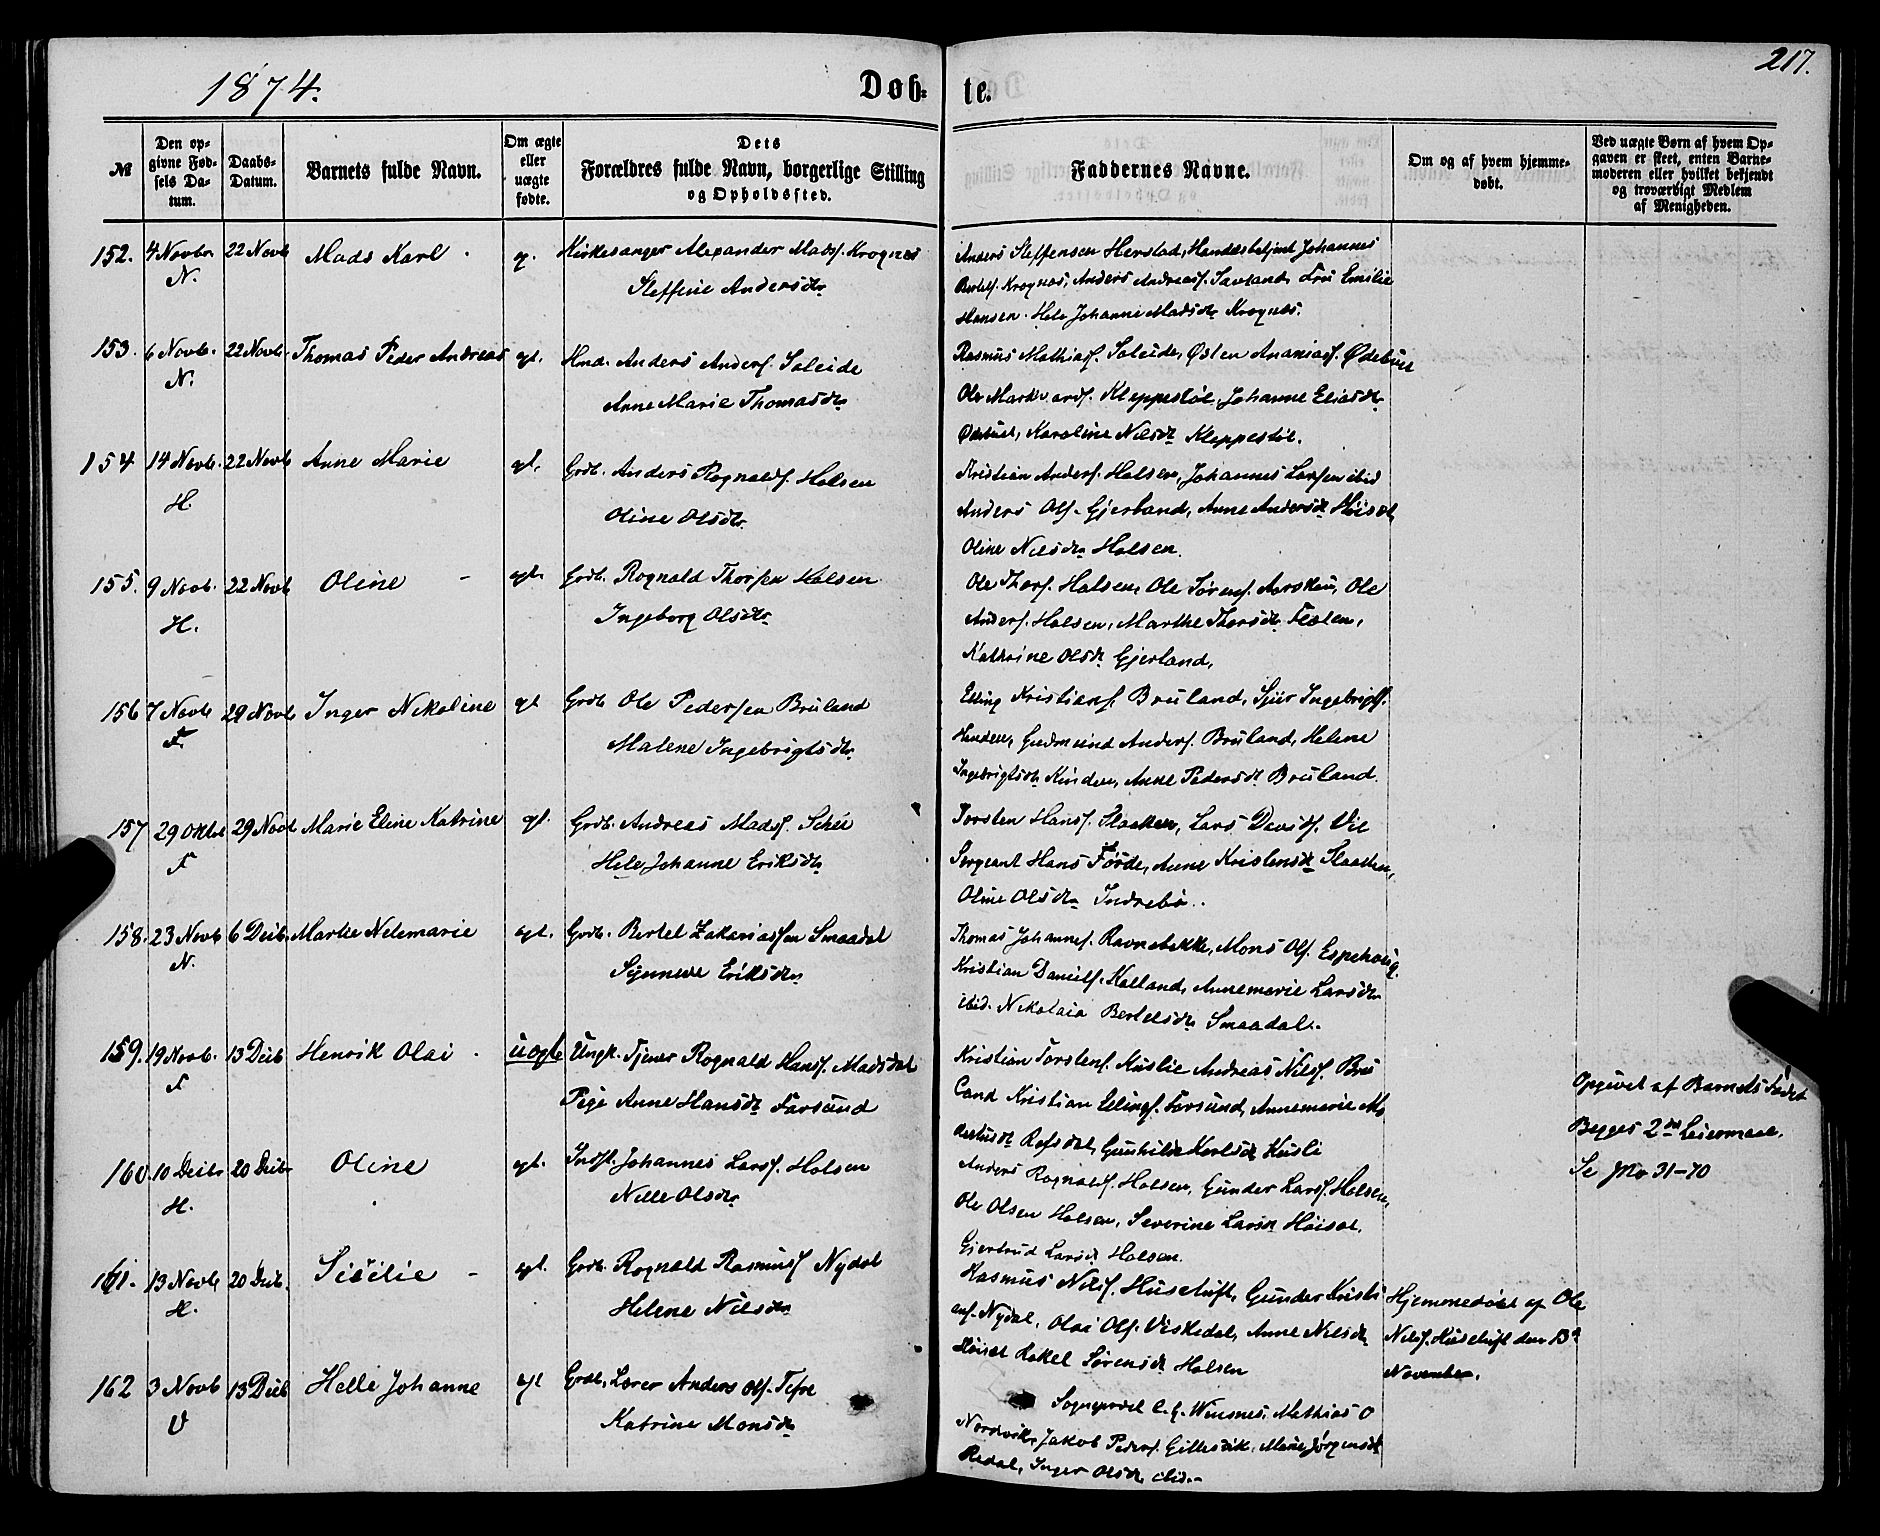 1874.
Døb-
te.
217.
№
Den op-
givne Fød-
sels Da-
tum.
Daabs-
Datum.
Barnets fulde Navn.
Om ægte
eller
uægte
fødte.
Dets
Forældres fulde Navn, borgerlige Stilling
og Opholdssted.
Faddernes Navne.
Om og af hvem hjemme-
døbt.
Ved uægte Børn af hvem Op-
gaven er skeet, enten Barne-
moderen eller hvilket bekjendt
og troværdigt Medlem
af Menigheden.
152. 4 Novbr 22 Novb Mads Karl g. Kirkesanger Alexander Madss. Krognes
N. Steffine Andersdtr
Anders Steffensen Herstad, Johannes
Bertels. Krognæs, Anders Andreass. Savland, Fru Emilie
Hansen. Hele Johanne Madsdtr Krognæs.
153. 6 Novb. 22 Novb. Thomas Peder Andreas egt. Hmd. Anders Anders. Soleide
N. Anne Marie Thomasdtr
Rasmus Mathiass. Soleide, Østen Ananiass. Ødebuet
Ole Markvards. Kleppestøl, Johanne Eliasdtr
Ødebuet, Karoline Nilsdtr Kleppestøl.
154 14 Novb. 22 Novb Anne Marie egt. Grdb. Anders Rognalds. Holsen
H. Oline Olsdtr
Kristian Anders. Holsen, Johannes Larssen ibid
Anders Ols. Gjerland, Anne Andersdtr Høiset,
Oline Nilsdtr Holsen.
155. 9 Novb. 22 Novb Oline - egt. Grdb. Rognald Thorssen Holsen
H. Ingeborg Olsdtr
Ole Thors. Holsen, Ole Sørens. Aarsken, Ole
Anders. Holsen, Marthe Thorsdtr Flølen,
Kathrine Olsdtr Gjerland,
156 7 Novb 29 Novb Inger Nikoline egt Grdb Ole Pederssen Bruland
F. Malene Ingebrigtsdtr
Elling Kristians. Bruland, Siur Ingebrigts.
Hunden, Gudmund Anders. Bruland, Helene
Ingebrigtsdtr Kinden, Anne Pedersdtr Bruland.
157 29 Oktb 29 Novb Marie Eline Katrine egt. Grdb. Andreas Mads. Schei
F Hele Johanne Eriksdtr
Torsten Hans. Slaatten, Lars Davids. Vie
Sergeant Hans Førde, Anne Kristensdtr Slaatten,
Oline Olsdtr Indrebø.
158. 23 Novb 6 Decb. Marthe Nilemarie egt. Grdb. Bertel Zakariassen Smaadal
N. Synneve Eriksdtr
Thomas Johannes. Ravnebekk, Mons Ols. Espehaug.
Kristian Daniels. Kalland, Annemarie Larsdtr
ibid. Nikolaia Bertelsdtr Smaadal.
159. 19 Novb. 13 Decb Henrik Olai uegte Ungk. Tjener Rognald Hans. Madsdal
F Pige Anne Hansdtr Farsund
Kristian Torstens. Huslie Andreas Nils. Bru
land Kristian Ellings. Farsund, Annemarie M
Refsdal, Gunhilde Karlsdtr Husli
Opgivet af Barnets Fader
Begges 2det Leiermaal.
Se No 31-70
160. 10 Decbr 20 Decbr Oline egt. Indst. Johannes Lars. Holsen
H. Nille Olsdtr
Anders Rognalds. Holsen, Gunder Lars. Holsen,
Ole Olsen Holsen, Severine Larsdtr Høiset,
Gjertrud Larsdtr Holsen.
161. 13 Novb 20 Decb. Sisilie - egt. Grdb. Rognald Rasmuss Nydal
H. Helene Nilsdtr
Rasmus Nils. Huseluft, Gunder Kristi
ans. Nydal, Olai Ols. Viskedal, Anne Nilsdtr
Høiset Rakel Sørensdtr Holsen
Hjemmedøbt af Ole
Nils. Huseluft den 13de
November.
162 3 Novb 13 Decb Helle Johanne egt Grdb, Lærer Anders Ols. Tefre
V Katrine Monsdtr
Sogneprest C. G. Wensnes, Mathias O
Nordvik, Jakob Peders. Gillesvik, Marie Jørgensdtr
Redal, Inger Olsdtr ibid.